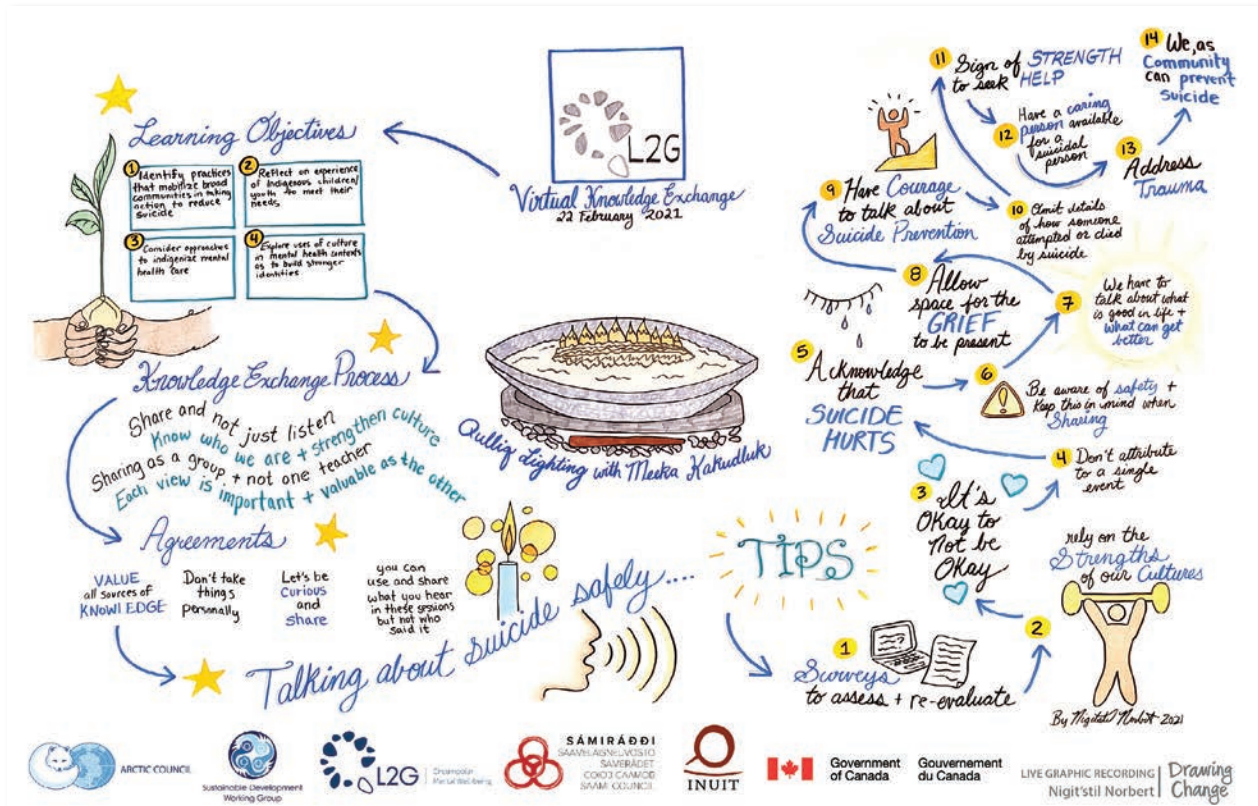 L2G
Virtual Knowledge Exchange
22 February 2021
Learning Objectives
1
Identify practices
that mobilize broad
communities in taking
action to reduce
suicide
2
Reflect on experience
of Indigenous children/
youth to meet their
needs
3
Consider approaches
to indigenize mental
health care
4
Explore uses of culture
in mental health contexts
as to build stronger
identities
Knowledge Exchange Process
Share and not just listen
Know who we are + strengthen culture
Sharing as a group + not one teacher
Each view is important + valuable as the other
Agreements
VALUE
all sources of
KNOWLEDGE
Don't take
things
personally
Let's be
Curious
and
share
you can
use and share
what you hear
in these sessions
but not who
said it
Qulliq Lighting with Meeka Kakudluk
Talking about suicide safely....
TIPS
1
Surveys
to assess + re-evaluate
2
rely on the
Strengths
of our Cultures
3
It's
Okay to
Not be
Okay
4
Don't attribute
to a single
event
5
Acknowledge
that
SUICIDE
HURTS
6
Be aware of safety +
Keep this in mind when
Sharing
7
We have to
talk about what
is good in life +
what can get
better
8
Allow
space for the
GRIEF
to be present
9
Have Courage
to talk about
Suicide Prevention
10
Omit details
of how someone
attempted or died
by suicide
11
Sign of STRENGTH
to seek HELP
12
Have a caring
person available
for a
suicidal
person
13
Address
Trauma
14
We, as
Community
can prevent
suicide
By Nigit'stil Norbert 2021
ARCTIC COUNCIL
Sustainable Development
Working Group
L2G
Circumpolar
Mental Well-being
SÁMIRÁĐĐI
SAAVELAGNEUVOSTO
SAVERÁDET
СОЮЗ СААМОВ
SAAMI COUNCIL
INUIT
Government
of Canada
Gouvernement
du Canada
LIVE GRAPHIC RECORDING
Nigit'stil Norbert
Drawing
Change